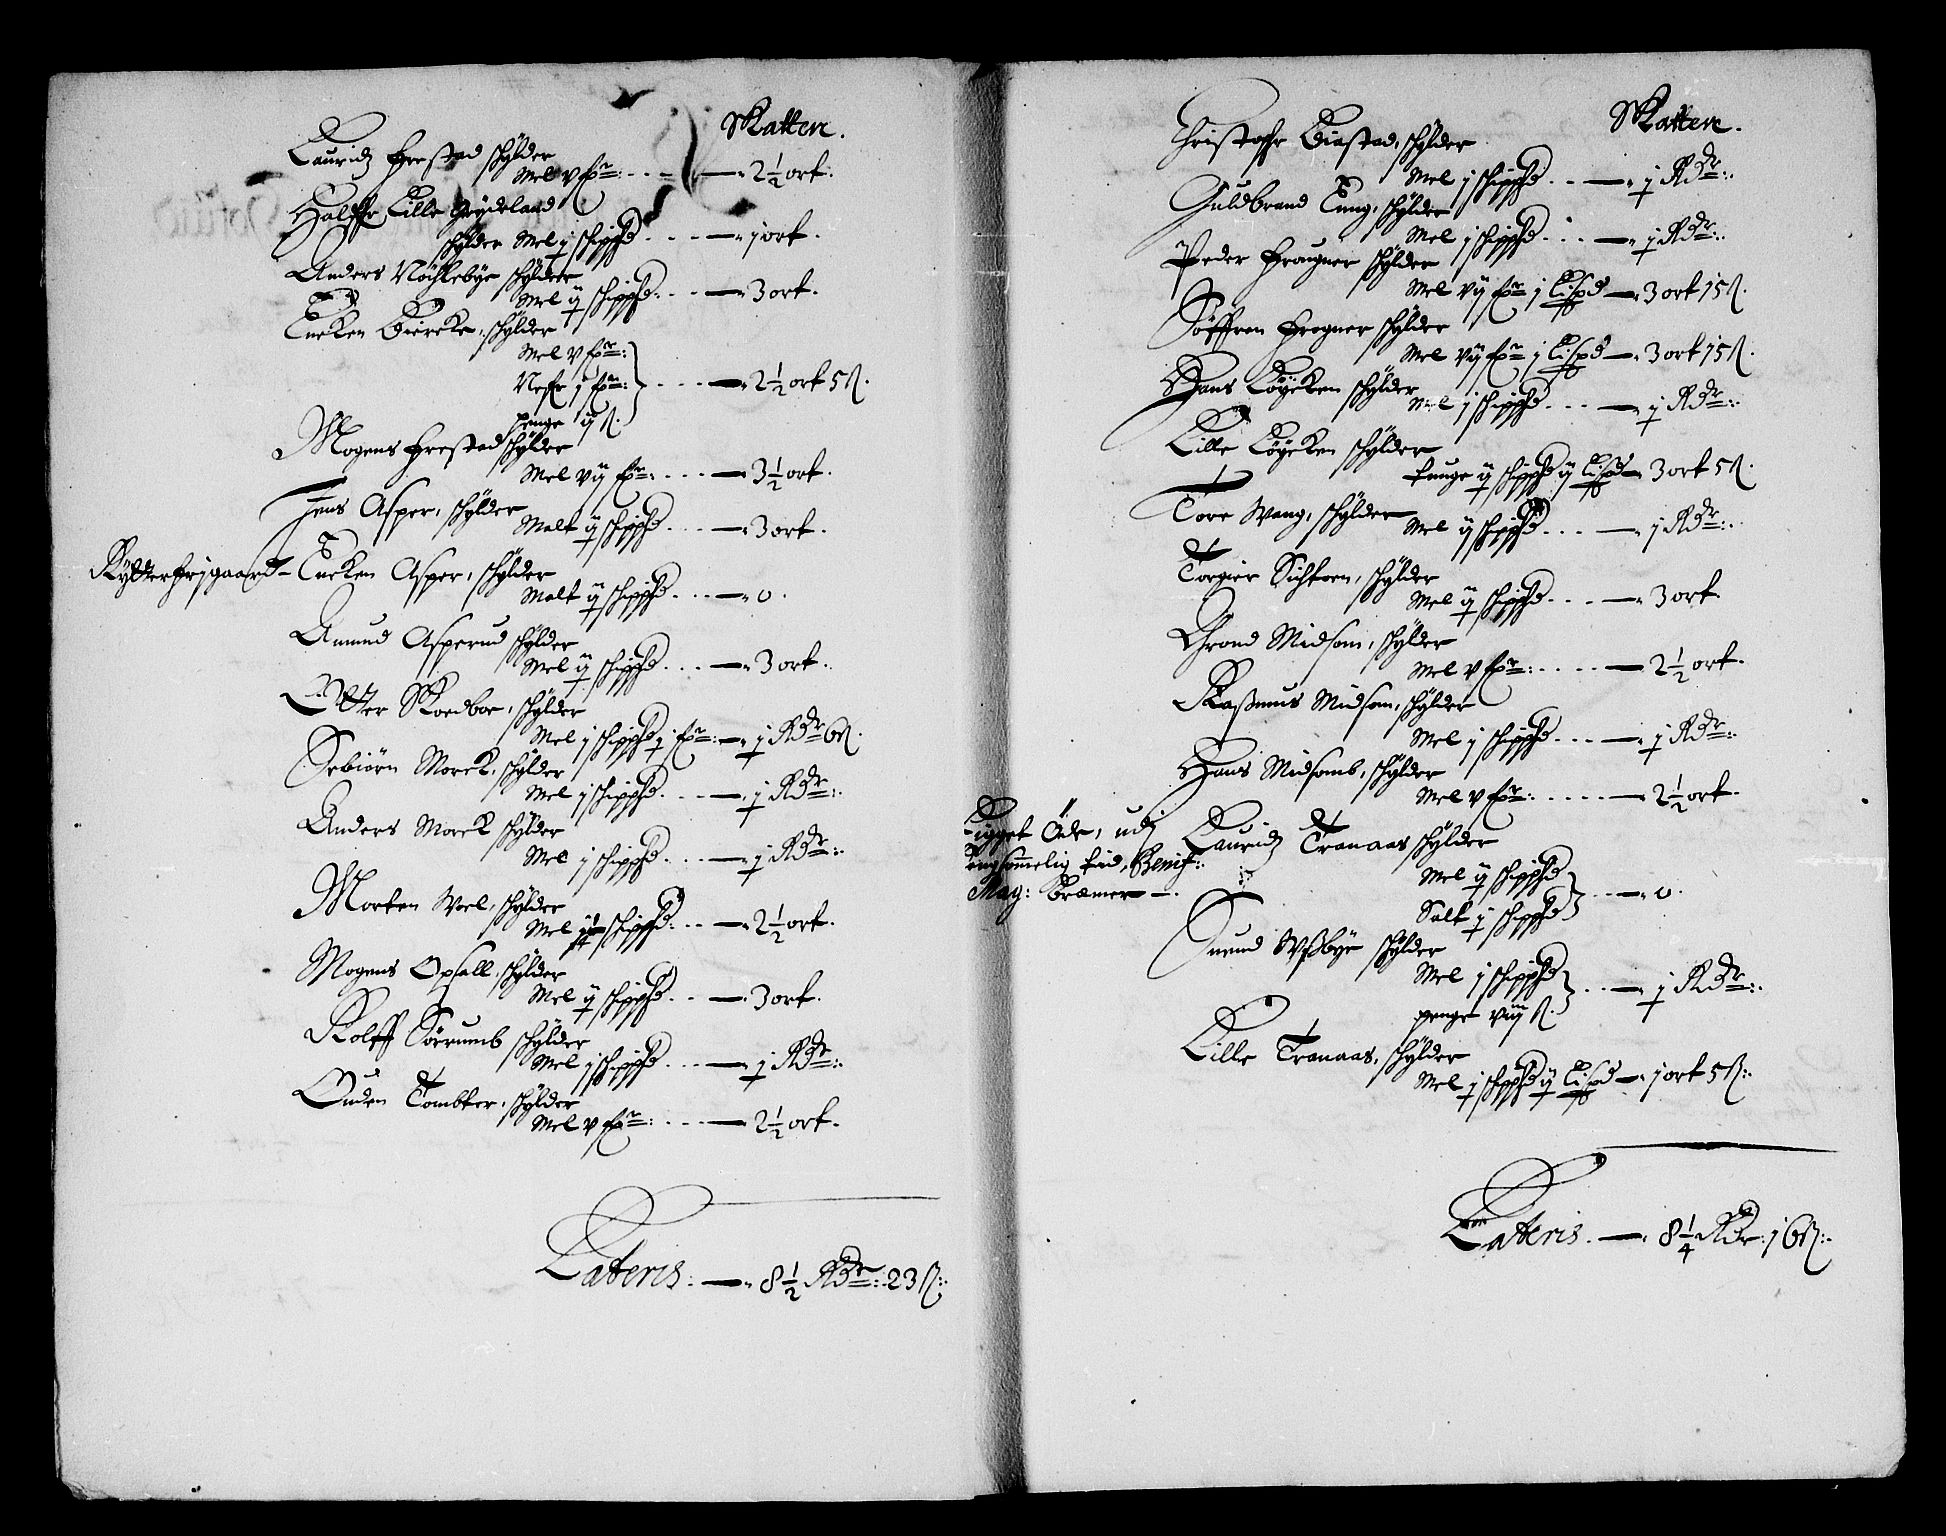 Skatten.
Lauridz Frestad schylder
Mel v fr: 2½ ort.
Halffr Lille Grydeland
schylder Mel j schippd 1 ort.
Anders Nøchlebye schylder
Mel ij schippd 3 ort.
Encken Biercke, schylder
Mel v fr:
Nefr j fr:
penge ij ß. 2½ ort 5 ß.
Mogens Frestad schylder
Mel vij fr: 3½ ort.
Jens Asper, schylder
Malt ij schippd 3 ort.
Rytterfrjgaard - Encken Asper, schylder
Malt ij schippd 0.
Amund Asperud schylder
Mel ij schippd 3 ort.
Otter Skoedboe, schylder
Mel j schippd j fr: j Rdr 6 ß.
Sebiørn Morck, schylder
Mel j schippd j Rdr:
Anders Morck schylder
Mel j schippd j Rdr:
Morten Woel, schylder
Mel schippd 2½ ort.
Mogens Opsall, schylder
Mel ij schippd 3 ort.
Rolff Sørrumb schylder
Mel j schippd j Rdr:
Ouden Tombter, schylder
Mel v fr: 2½ ort.
Lateris. 8½ Rdr: 23 ß:
Skatten.
Christoffr Biestad, schylder
Mel j schippd j Rdr:
Guldbrand Eung, schylder
Mel j schippd j Rdr:
Peder Frougner schylder
Mel vij fr j Lispd 3 ort 15 ß.
Søffren Frogner schylder
Mel vij fr j Lispd 3 ort 15 ß.
Hans Løycken schylder
Mel j schippd j Rdr:
Lille Løycken schylder
tunge ij schippd ij Lispd 3 ort 5 ß.
Tore Wang, schylder
Mel ij schippd j Rdr:
Torgier Sichtoen, schylder
Mel ij schippd 3 ort.
Trond Midsom, schylder
Mel v fr: 2½ ort.
Rasmus Midsom, schylder
Mel j schippd j Rdr:
Hans Midsomb, schylder
Mel v fr: 2½ ort.
Ligget Øde, udj
langsommelig tid, Benif:
Mag: Bræmer -.
Lauridz Tranaas schylder
Mel ij schippd
Salt j schippd 0.
Suend Wssbye schylder
Mel j schippd
penge viij ß. j Rdr:
Lille Tranaas, schylder
Mel j schippd ij Lispd 1 ort 5 ß:
Lateris. 8¼ Rdr: 16 ß: